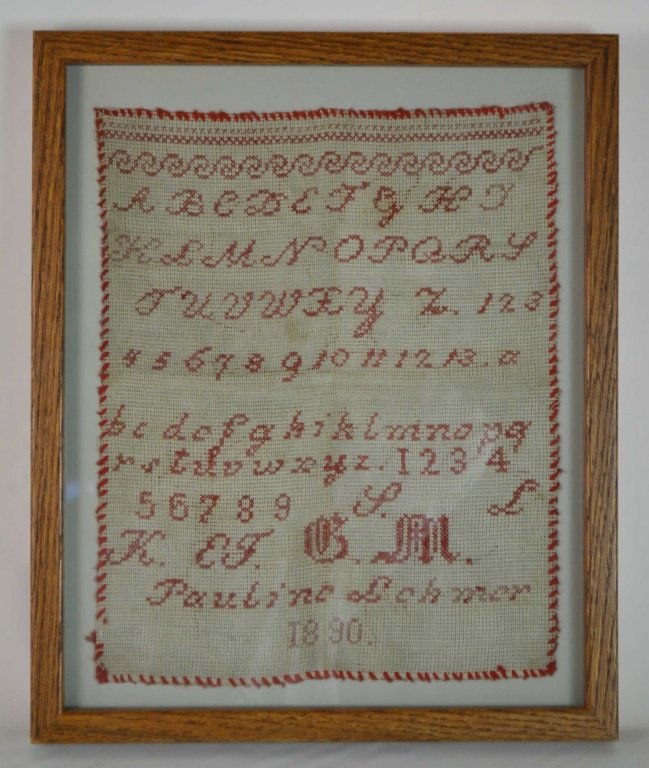 A B C D E F G H I
K L M N O P Q R S
T U V W X Y Z. 1 2 3
4 5 6 7 8 9 10 11 12 13. a
b c d e f g h i k l m n o p q
r s t u v w x y z. 1 2 3 4
5 6 7 8 9 S. L
K. E F. G. M.
Pauline Lehmer
1890.